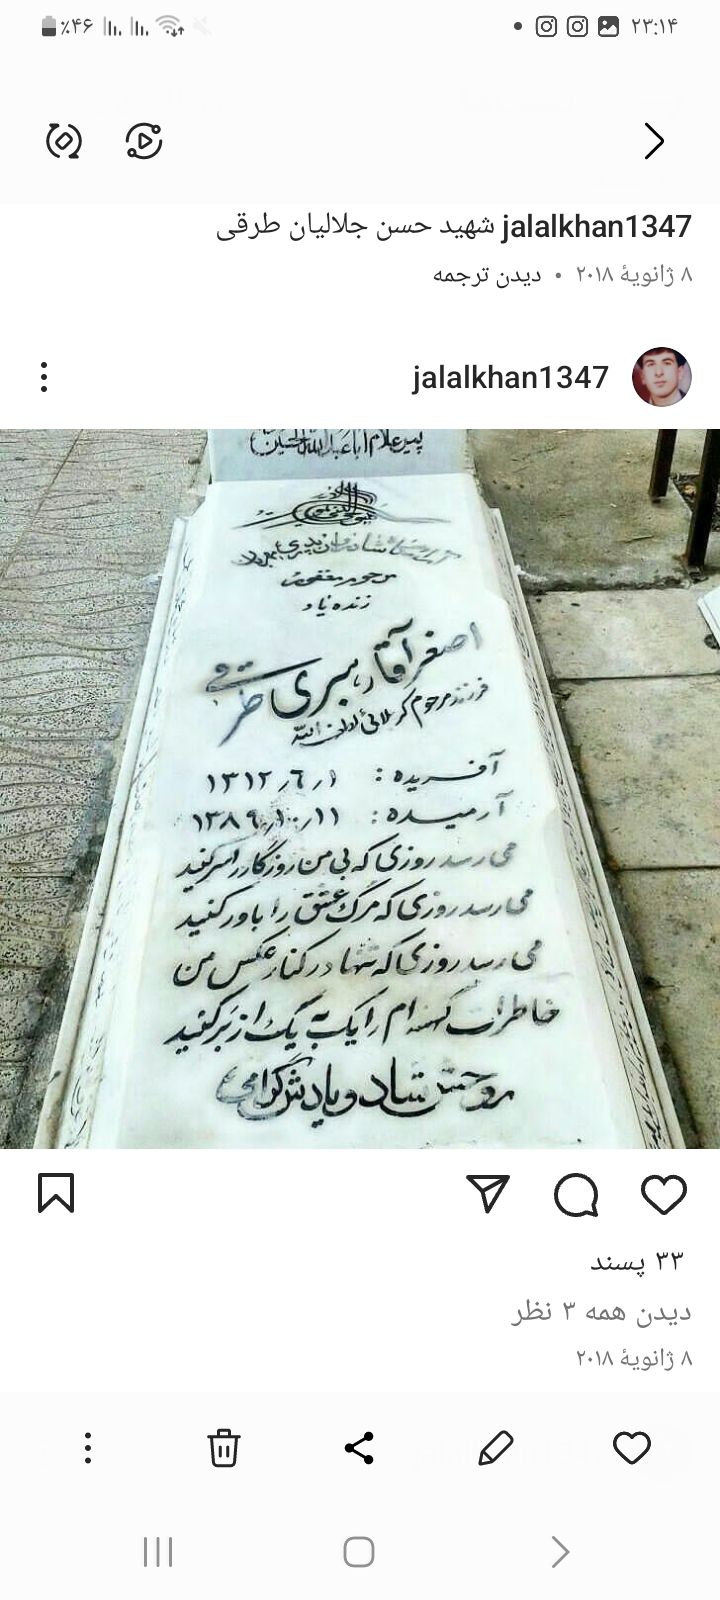 ۲۳:۱۴
٪۴۶
jalalkhan1347 شهید حسن جلالیان طرقی
۸ ژانویهٔ ۲۰۱۸ • دیدن ترجمه
jalalkhan1347
پیرغلام اباعبدالله الحسین
آرامگاه شادروان پدری مهربان
مرحوم مغفور
زنده یاد
اصغر آقا رهبری طرقی
فرزند مرحوم کربلائی امان الله
آفریده : ۱۳۱۲٫۶٫۱
آرمیده : ۱۳۸۹٫۱۰٫۱۱
می رسد روزی که بی من روزگار را سر کنید
می رسد روزی که مرگ عشق را باور کنید
می رسد روزی که تنها در کنار عکس من
خاطرات کهنه ام را یک به یک از بر کنید
روحش شاد و یادش گرامی
۳۳ پسند
دیدن همه ۳ نظر
۸ ژانویهٔ ۲۰۱۸